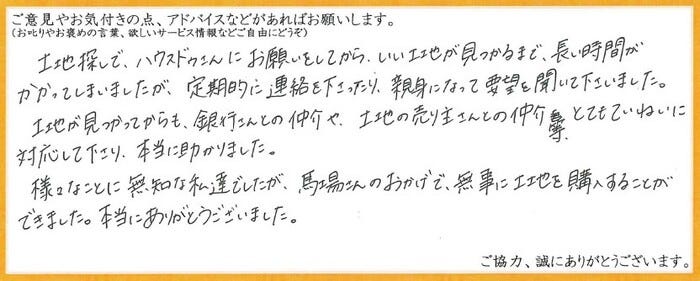 ご意見やお気付きの点、アドバイスなどがあればお願いします。
(お叱りやお褒めの言葉、欲しいサービス情報などご自由にどうぞ)
土地探しで、ハウスドゥさんにお願いをしてから、いい土地が見つかるまで、長い時間が
かかってしまいましたが、定期的に連絡を下さったり、親身になって要望を聞いて下さいました。
土地が見つかってからも、銀行さんとの仲介や、土地の売り主さんとの仲介等、とてもていねいに
対応して下さり、本当に助かりました。
様々なことに無知な私達でしたが、馬場さんのおかげで、無事に土地を購入することが
できました。本当にありがとうございました。
ご協力、誠にありがとうございます。